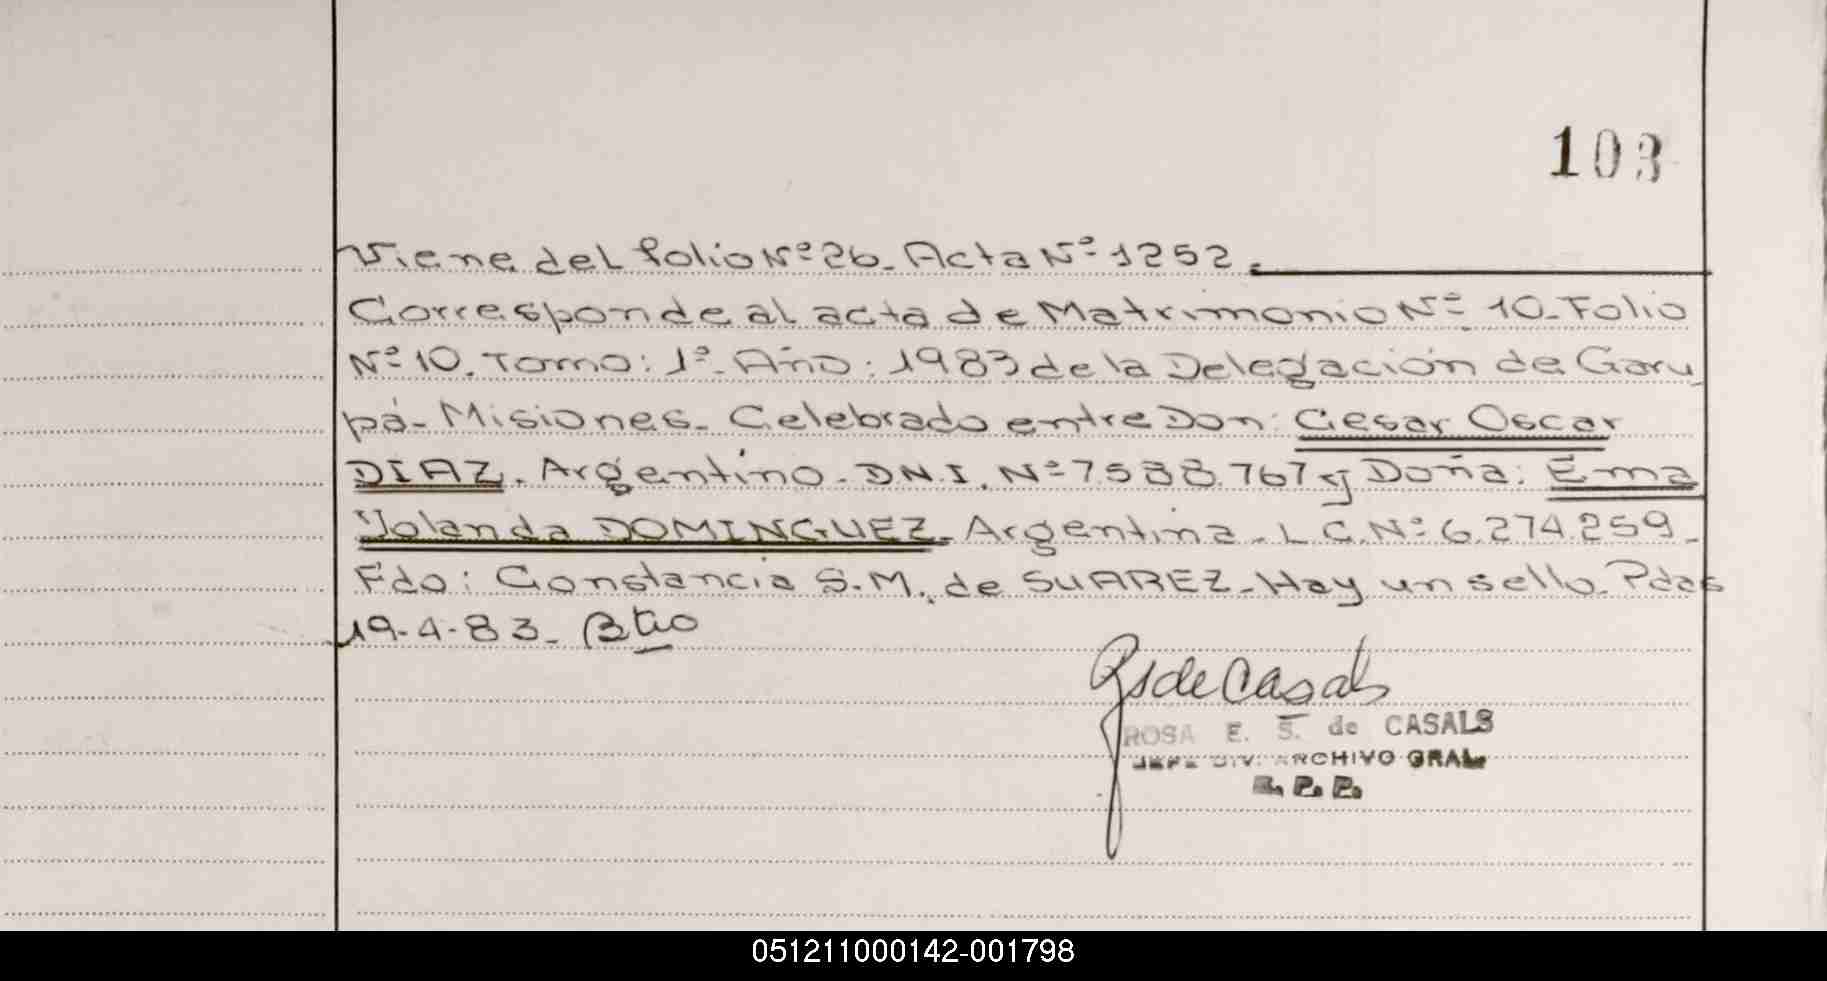 103
Viene del folio Nº 26. Acta Nº 1252.
Corresponde al acta de Matrimonio Nº 10. Folio
Nº 10. Tomo: 1º. Año: 1983 de la Delegación de Garu
pá- Misiones. Celebrado entre Don: Cesar Oscar
DIAZ. Argentino. D.N.I. Nº 7.588.767 y Doña: Ema
Yolanda DOMINGUEZ. Argentina. L.C. Nº 6.274.259.
Fdo: Constancia S.M. de SUAREZ. Hay un sello. Pdas
19-4-83. Btio
RS de Casals
ROSA E. S. de CASALS
JEFE DIV. ARCHIVO GRAL.
R. P. P.
051211000142-001798